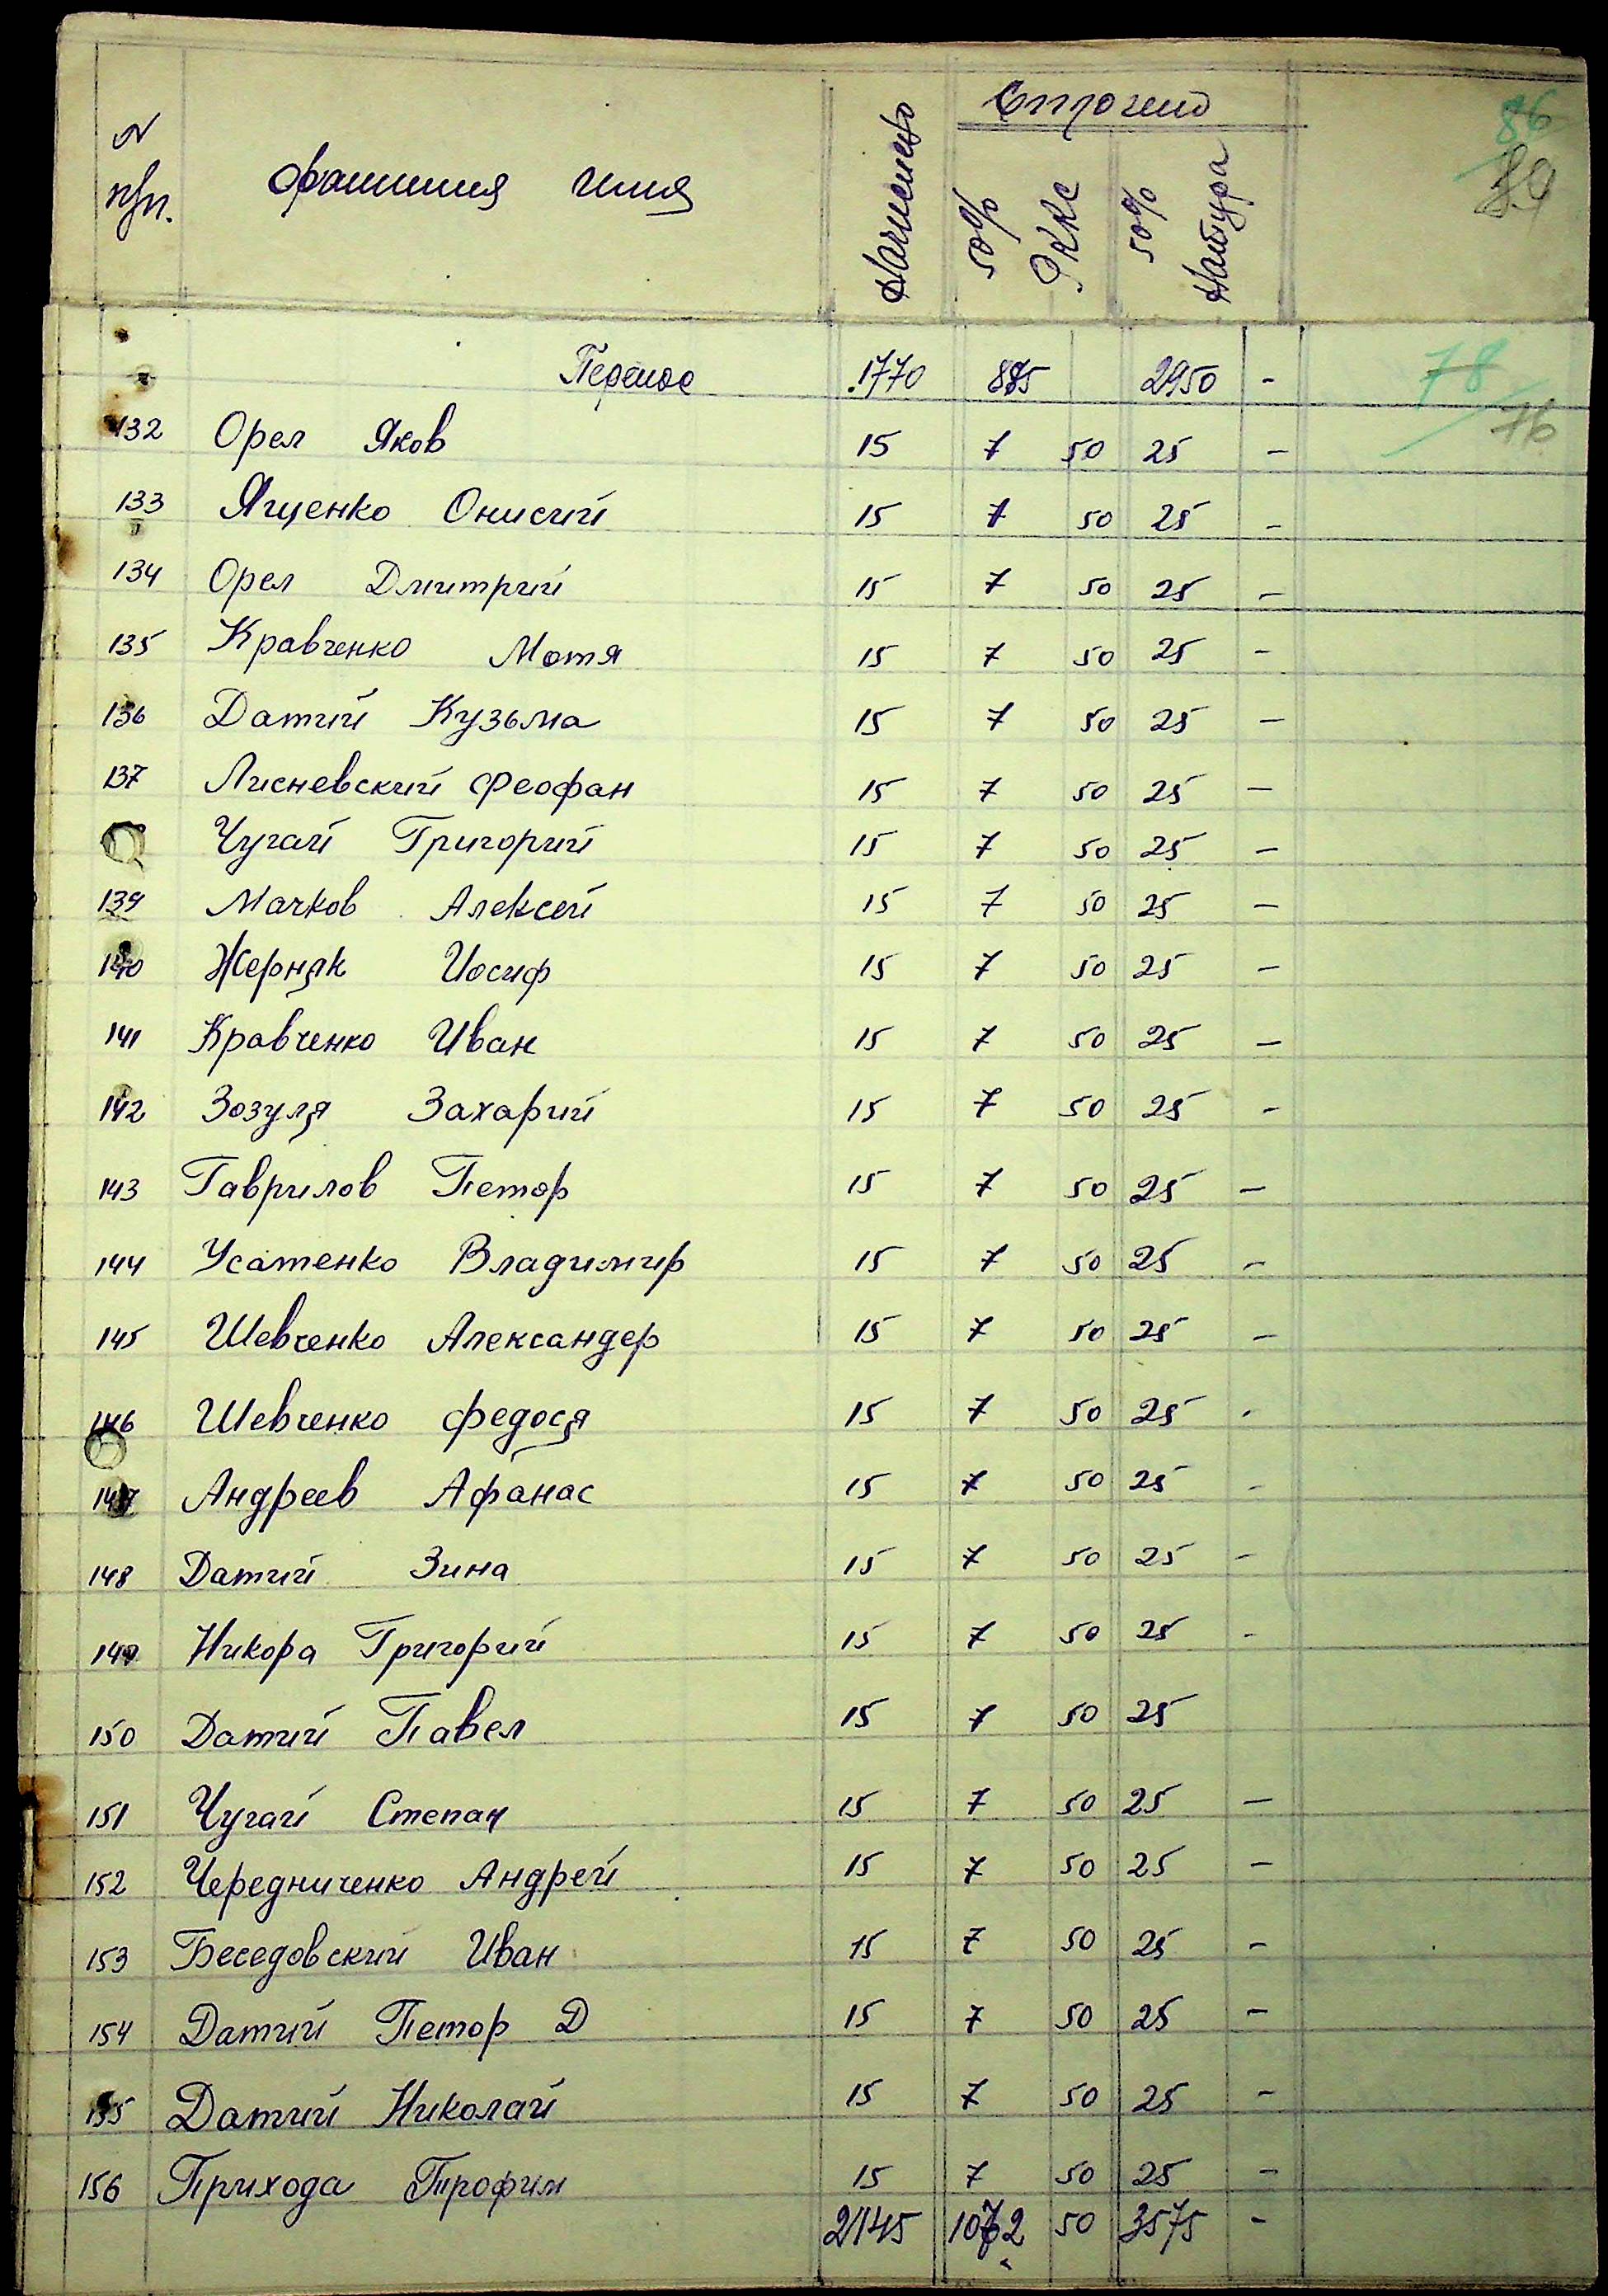 N п/п. Фамилия имя Начислено Строчено 86 84
50% РККС 50% Натура
Перенос 1770 885 2950 - 78 76
132 Орел Яков 15 7 50 25 -
133 Ященко Онисий 15 7 50 25 -
134 Орел Дмитрий 15 7 50 25 -
135 Кравченко Мотя 15 7 50 25 -
136 Датий Кузьма 15 7 50 25 -
137 Лисневский Феофан 15 7 50 25 -
Чугай Григорий 15 7 50 25 -
139 Мачков Алексей 15 7 50 25 -
140 Жерняк Иосиф 15 7 50 25 -
141 Кравченко Иван 15 7 50 25 -
142 Зозуля Захарий 15 7 50 25 -
143 Гаврилов Петор 15 7 50 25 -
144 Усатенко Владимир 15 7 50 25 -
145 Шевченко Александер 15 7 50 25 -
146 Шевченко Федося 15 7 50 25 -
147 Андреев Афанас 15 7 50 25 -
148 Датий Зина 15 7 50 25 -
149 Никора Григорий 15 7 50 25 -
150 Датий Павел 15 7 50 25
151 Чугай Степан 15 7 50 25 -
152 Чередниченко Андрей 15 7 50 25 -
153 Беседовский Иван 15 7 50 25 -
154 Датий Петор Д 15 7 50 25 -
155 Датий Николай 15 7 50 25 -
156 Прихода Трофим 15 7 50 25 -
2145 1072 50 3575 -